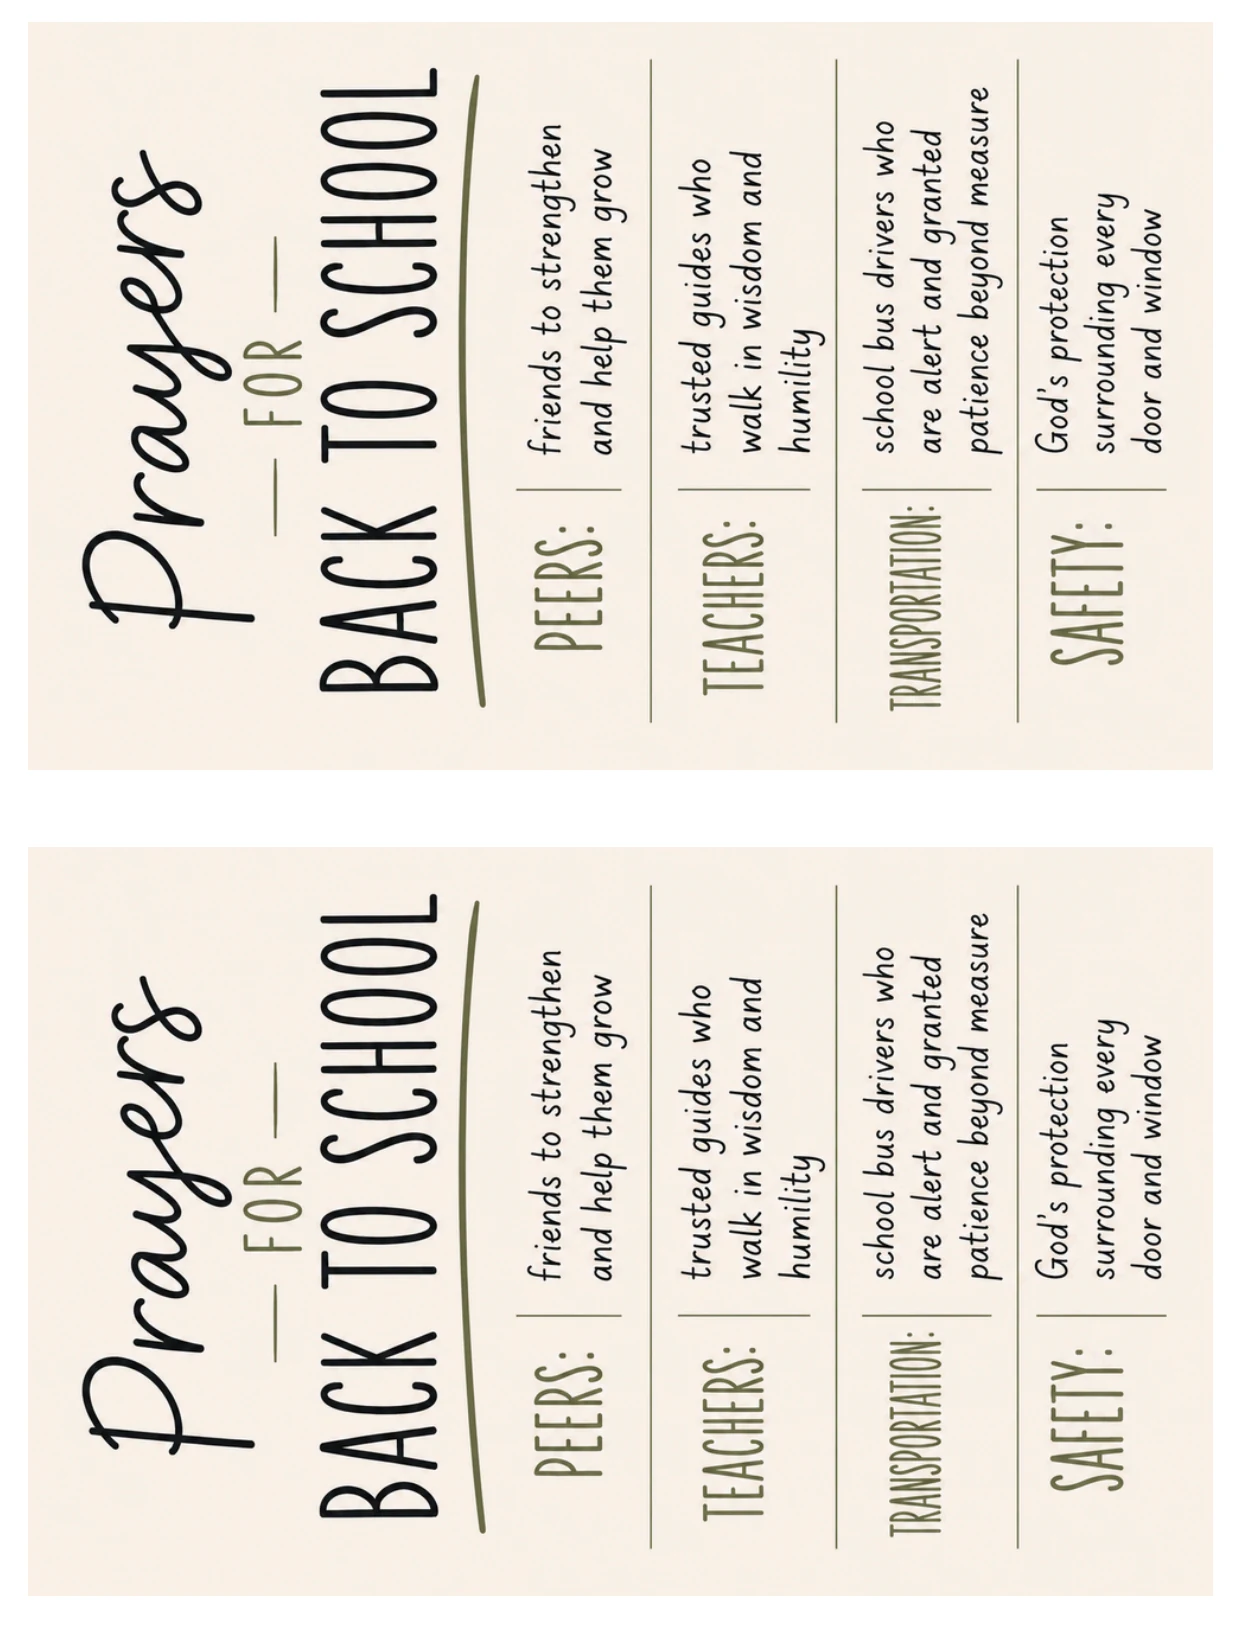 Prayers
FOR
BACK TO SCHOOL
PEERS:
friends to strengthen
and help them grow
TEACHERS:
trusted guides who
walk in wisdom and
humility
TRANSPORTATION:
school bus drivers who
are alert and granted
patience beyond measure
SAFETY:
God's protection
surrounding every
door and window
Prayers
FOR
BACK TO SCHOOL
PEERS:
friends to strengthen
and help them grow
TEACHERS:
trusted guides who
walk in wisdom and
humility
TRANSPORTATION:
school bus drivers who
are alert and granted
patience beyond measure
SAFETY:
God's protection
surrounding every
door and window